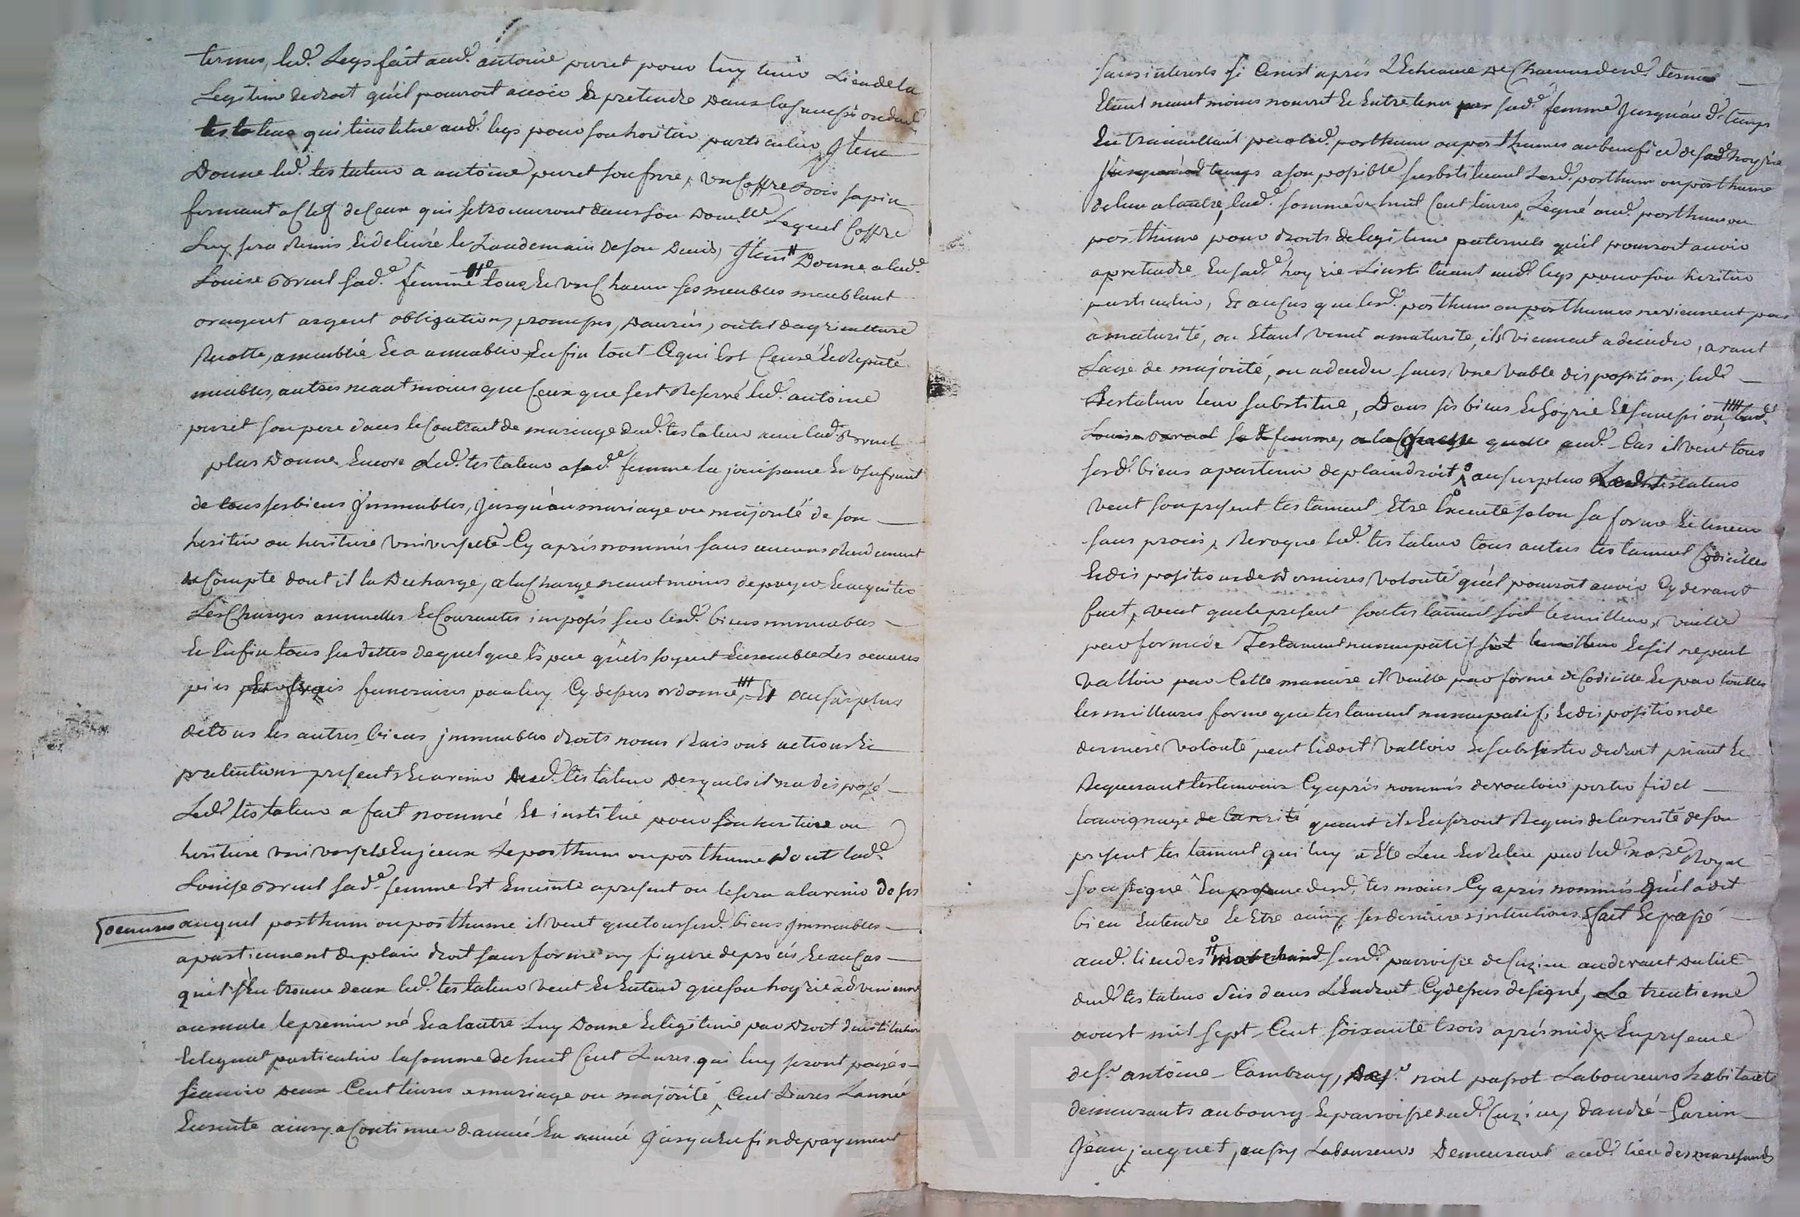 termes, led. Legs fait aud. antoine puret pour luy tenir Lieu de la
Legitime de droit qu'il pourroit avoir & pretendre Dans la succession dud.
testateur qui l'institue aud. legs pour son heritier particulier, Item
Donne led. testateur a antoine puret son frere, un Coffre Bois sapin
fermant a Clef de Ceux qui se trouveront dans son Domlle Lequel Coffre
Luy sera remis et delivré le Landemain de son Deces, Item Donne a lad.
Louise sad. femme tous & un Chacun ses meubles meublant
or argent argent obligations, promesses, Danrées, outil dagriculture
Recolte, ameublie & a ameublir, Enfin tout Ce qui Est Censé & Reputé
meubles, autres neant moins que Ceux que sest Reservé led. antoine
puret son pere dans le Contrat de mariage dud. testateur avec lad.
plus Donne Encore Led. testateur a sad. femme la jouissance & usufruit
de tous ses biens Immeubles, Jusqu'au mariage ou majorité de son
heritier ou heritiere universelle Cy après nommés sans aucuns
de Compte dont il la Decharge, a la Charge neant moins de payer & acquiter
Les Charges annuelles & Courantes imposés sur lesd. biens immeubles
& Enfin tous ses dettes de quelque Espece qu'els soyent Ensemble Les oeuvres
pies funeraires par luy Cy dessus ordonné, Et au surplus
de tous les autres biens immeubles droits noms Raisons actions &
pretentions presents & avenir dud. testateur Desquels il n'a disposé
Led. testateur a fait nommé Et institué pour son heritiere ou
heritiere universelle Le posthum ou posthume Dont lad.
Louise sad. femme Est Enceinte apresent ou le sera a lavenir De ses
oeuvres auquel posthum ou posthume il veut que tous sesd. biens Immeubles
apartiennent de plain droit sans forme ny figure de procés, & au Cas
quil s'En trouve deux led. testateur veut & Entend que son hoyrie advienne
au male le premier né & a lautre Luy Donne & legitime par Droit dinstitution
& legat particulier la somme de huit Cent Livres, qui luy seront payés
scavoir Deux Cent livres a mariage ou majorité Cent Livres Lannée
Ensuite ainsy a Continuer dannée En année Jusqu'a Enfin de payement
sans interests si Cenest après L'Echeance De Chacun desd. termes
Etant neant moins nourrit & Entretenu par sad. femme Jusqu'au d. temps
En travaillant par led. posthum ou posthume au benefice de sad. hoyrie
Jusqu'aud. temps a son possible substituant Lesd. posthum ou posthume
de lun a lautre, lad. somme de huit Cent livres, Legué aud. posthum ou
posthume pour droits de legitime paternels qu'il pourroit avoir
a pretendre En sad. hoyrie Linstituant aud. legs pour son heritier
particulier, & au Cas que lesd. posthum ou posthumes ne viennent pas
à maturité, ou Etant venû a maturité ils viennent a deceder, avant
Lage de majorité, ou a deceder sans une vable disposition, led.
Testateur leur substitue, Dans ses biens & hoyrie & succession, lad.
Louise sad. femme, a la Charge quelle aud. Cas il veut tous
sesd. biens apartenir de plain droit, au surplus Led. testateur
veut son present testament Etre Executé selon sa forme & teneur
sans procés, Revoque led. testateur tous autres testament Codicilles
& dispositions de Dernieres volonté qu'il pourroit avoir Cy devant
fait, veut que le present son testament soit le meilleur, vaille
par forme de Testament nuncupatif & s'il ne peut
valloir par Cette maniere il vaille par forme de Codicille & par toutes
les meilleures forme que testament nuncupatif, & disposition de
derniere volonté peut & doit valloir & subsister de droit priant &
Requerant les temoins Cy après nommés de vouloir porter fidel
temoignage de la verité quant ils En seront Requis de la verité de son
present testament qui luy a Eté Leu & Releu par led. nore Royal
soussigné En presence desd. temoins Cy après nommés qu'il a dit
bien Entendre & Etre ainsy ses dernieres intentions, fait & passé
aud. lieu des marechand susd. parroisse de Cuzieu audevant du lict
dud. testateur sis dans L'Endroit Cydessus designé, Le trentieme
avout mil sept Cent soixante trois après midy, En presence
de sr. antoine Cambray, de sr. noel pasrot Laboureurs habitants
demeurants au bourg & parroisse dud. Cuzieu, dandré Garin
Jean jacquet, aussy Laboureurs Demeurant aud. lieu des marechands